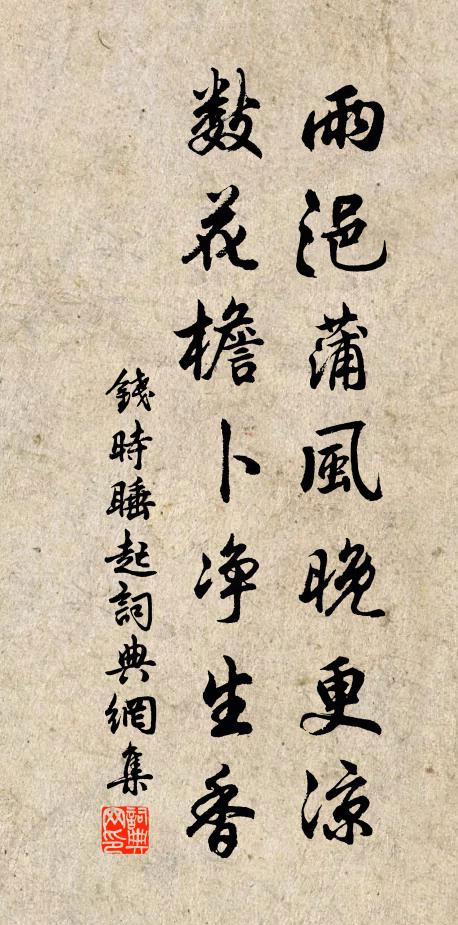 雨浥蒲風晚更涼
數花檐卜净生香
錢時睡起詞典網集
詞典网印